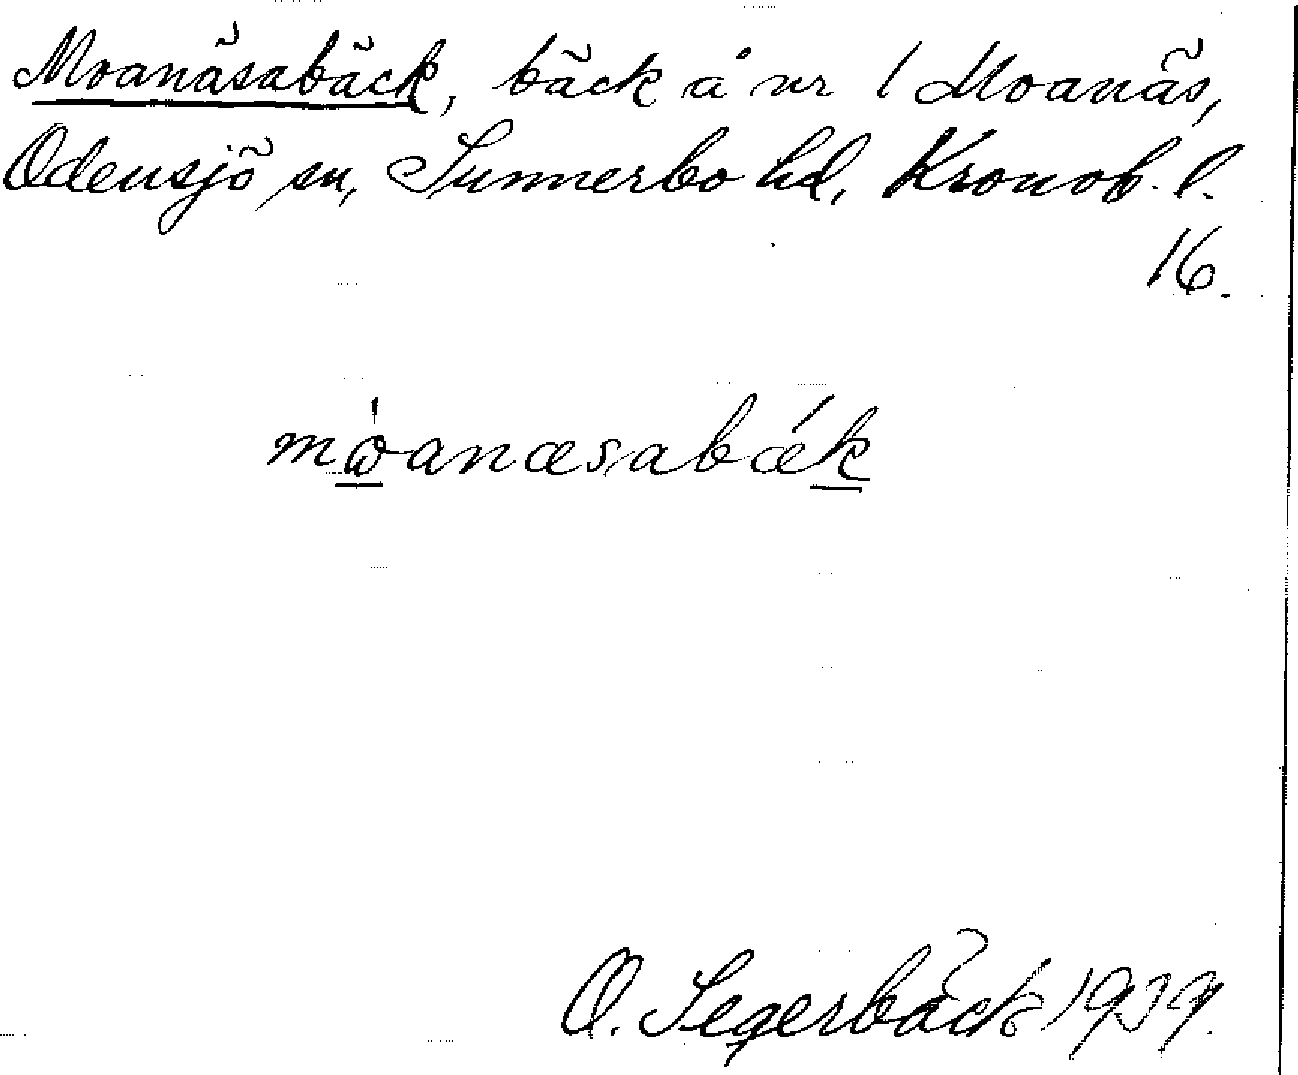 Moanäsabäck, bäck å nr 1 Moanäs,
Odensjö sn, Sunnerbo hd, Kronob. l.
16.
mὼanæsabǽk
O. Segerbäck 1939.